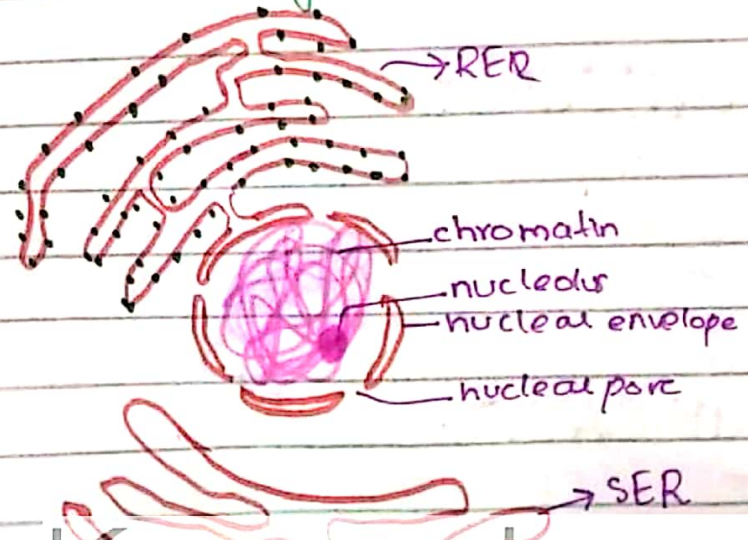 RER
chromatin
nucleolus
nuclear envelope
nuclear pore
SER